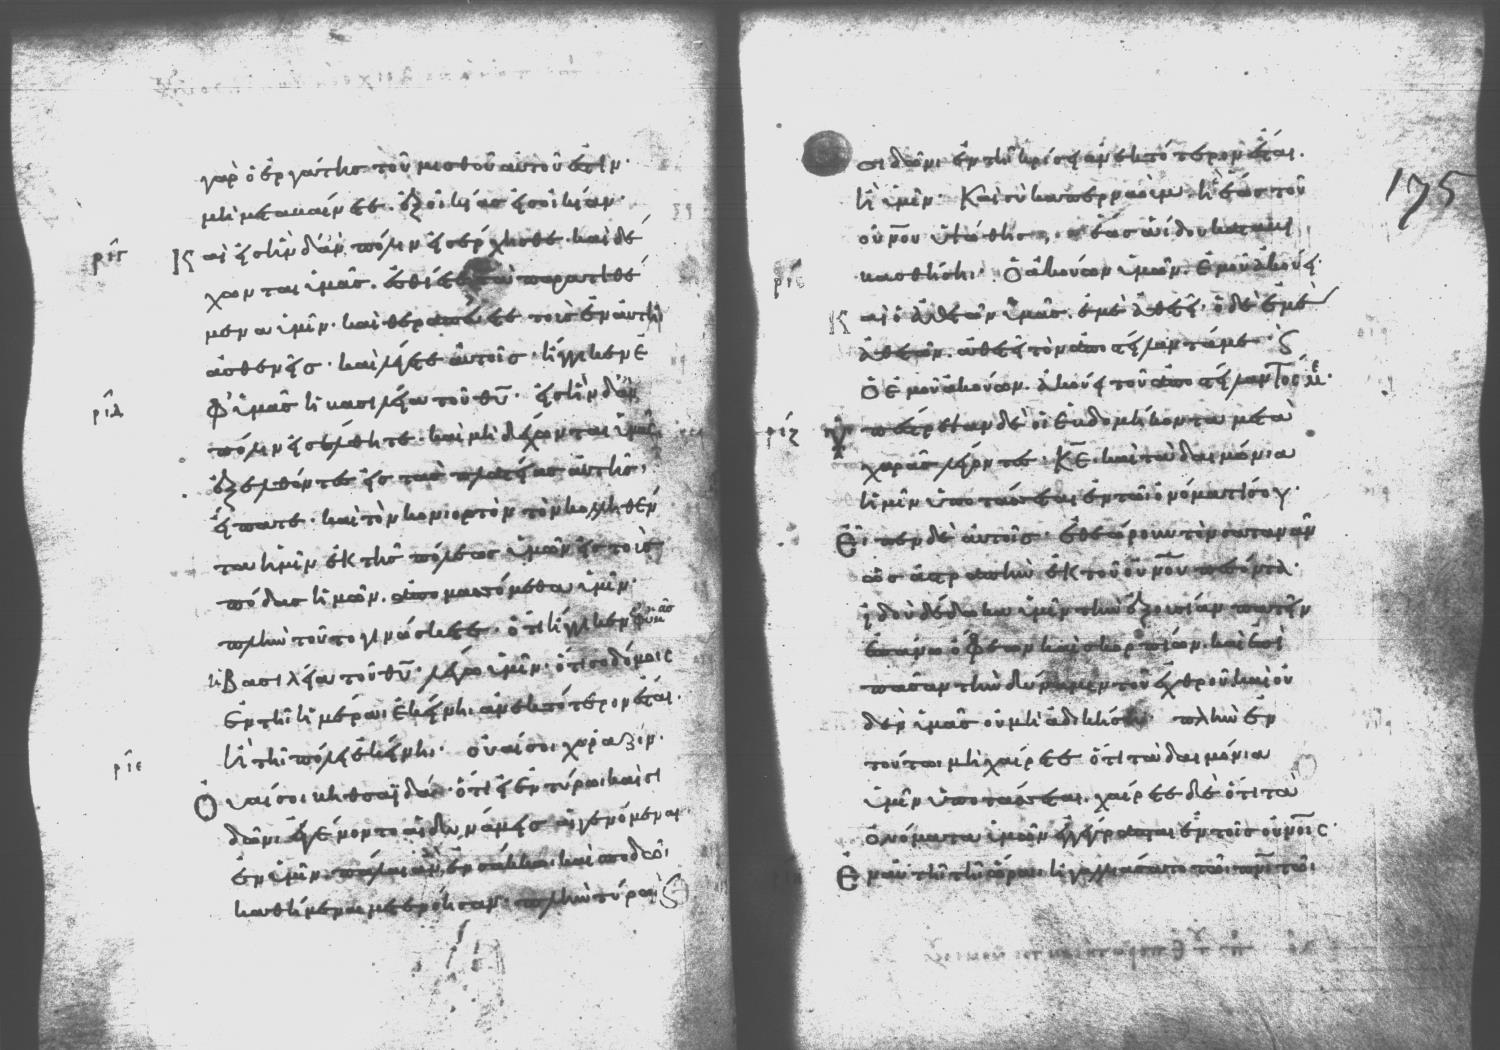 γὰρ ὁ ἐργάτης τοῦ μισθοῦ αὐτοῦ ἐστίν·
μὴ μεταβαίνετε ἐξ οἰκίας εἰς οἰκίαν·
ριγ
Καὶ εἰς ἣν δ' ἂν πόλιν εἰσέρχησθε· καὶ δέ
χωνται ὑμᾶς. ἐσθίετε τὰ παρατιθέ
μενα ὑμῖν· καὶ θεραπεύετε τοὺς ἐν αὐτῇ
ἀσθενεῖς· καὶ λέγετε αὐτοῖς· ἤγγικεν ἐ
ριδ
φ' ὑμᾶς ἡ βασιλεία τοῦ θυ· εἰς ἣν δ' ἂν
πόλιν εἰσέλθητε· καὶ μὴ δέχωνται ὑμᾶς
ἐξελθόντες εἰς τὰς πλατείας αὐτῆς,
εἴπατε· καὶ τὸν κονιορτὸν τὸν κολληθέν
τα ἡμῖν ἐκ τῆς πόλεως ὑμῶν εἰς τοὺς
πόδας ἡμῶν. ἀπομασσόμεθα ὑμῖν·
πλὴν τοῦτο γινώσκετε· ὅτι ἤγγικεν ἐφ' ὑμᾶς
ἡ βασιλεία τοῦ θυ· λέγω ὑμῖν· ὅτι σοδόμοις
ἐν τῇ ἡμέρᾳ ἐκείνῃ ἀνεκτότερον ἔσται.
ριε
ἢ τῇ πόλει ἐκείνῃ· οὐαί σοι χοραζίν·
Οὐαί σοι βηθσαϊδά· ὅτι εἰ ἐν τύρωι καὶ σι
δῶνι ἐγένοντο αἱ δυνάμεις αἱ γενόμεναι
ἐν ὑμῖν· πάλαι ἂν ἐν σάκκωι καὶ σποδῶι
καθήμεναι μετενόησαν· πλὴν τύρωι
σιδῶνι ἐν τῇ κρίσει ἀνεκτότερον ἔσται.
ἢ ὑμῖν· Καὶ σὺ καπερναοὺμ. ἡ ἕως τοῦ
οὐνου ὑψωθεῖσα, ἕως ἅιδου κατα
ρις
βιβασθήσῃ· Ὁ ἀκούων ὑμῶν. ἐμοῦ ἀκούει·
Καὶ ὁ ἀθετῶν ὑμᾶς. ἐμὲ ἀθετεῖ· ὁ δὲ ἐμὲ
ἀθετῶν. ἀθετεῖ τὸν ἀποστείλαντά με·
Ὁ ἐμοῦ ἀκούων. ἀκούει τοῦ ἀποστείλαντός με·
ριζ
Ὑπέστρεψαν δὲ οἱ ἑβδομήκοντα μετὰ
χαρᾶς λέγοντες· κε. καὶ τὰ δαιμόνια
ἡμῖν ὑποτάσσεται ἐν τῶι ὀνόματί σου·
Εἶπεν δὲ αὐτοῖς· ἐθεώρουν τὸν σατανᾶν
ὡς ἀστραπὴν ἐκ τοῦ οὐνου πεσόντα·
ἰδοὺ δέδωκα ὑμῖν τὴν ἐξουσίαν πατεῖν
ἐπάνω ὄφεων καὶ σκορπίων. καὶ ἐπὶ
πᾶσαν τὴν δύναμιν τοῦ ἐχθροῦ· καὶ οὐ
δὲν ὑμᾶς οὐ μὴ ἀδικήσει· πλὴν ἐν
τούτωι μὴ χαίρετε ὅτι τὰ δαιμόνια
ὑμῖν ὑποτάσσεται. χαίρετε δὲ ὅτι τὰ
ὀνόματα ὑμῶν ἐγγέγραπται ἐν τοῖς οὐνοις·
Ἐν αὐτῇ τῇ ὥραι ἠγαλλιάσατο τῶι πνι τῶι
175